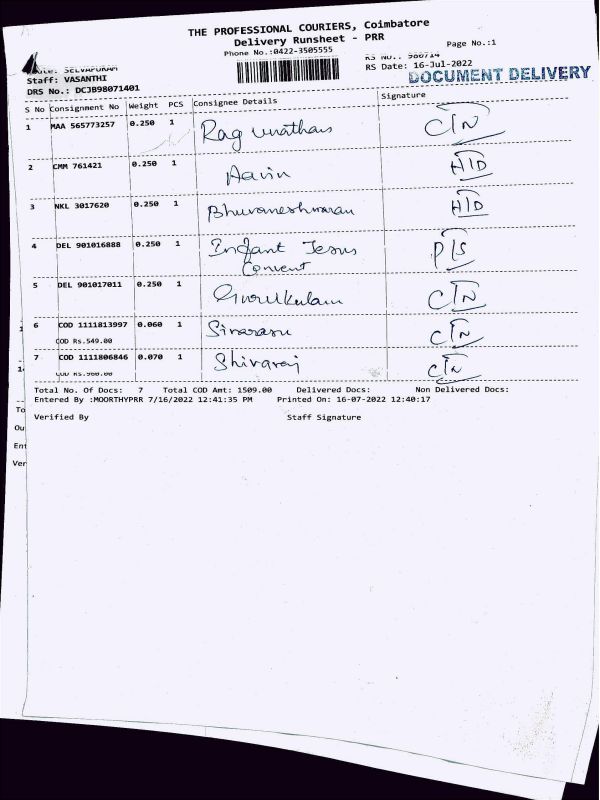 THE PROFESSIONAL COURIERS, Coimbatore
Delivery Runsheet - PRR
Phone No.:0422-3505555
Page No.:1
SELVAPURAM
RS No.: 980714
Staff: VASANTHI
RS Date: 16-Jul-2022
DOCUMENT DELIVERY
DRS No.: DCJB98071401
S No Consignment No Weight PCS Consignee Details Signature
1 MAA 565773257 0.250 1 Ragunathan CTN
2 CMM 761421 0.250 1 Aavin HID
3 NKL 3017620 0.250 1 Bhuvaneshwaran HID
4 DEL 901016888 0.250 1 Infant Jesus P/S
Convent
5 DEL 901017011 0.250 1 Gurukulam CTN
6 COD 1111813997 0.060 1 Sivarasu CTN
COD Rs.549.00
7 COD 1111806846 0.070 1 Shivaraj CTN
COD Rs.960.00
Total No. Of Docs: 7 Total COD Amt: 1509.00 Delivered Docs: Non Delivered Docs:
Entered By :MOORTHYPRR 7/16/2022 12:41:35 PM Printed On: 16-07-2022 12:40:17
Verified By Staff Signature
To
Ou
Ent
Ver